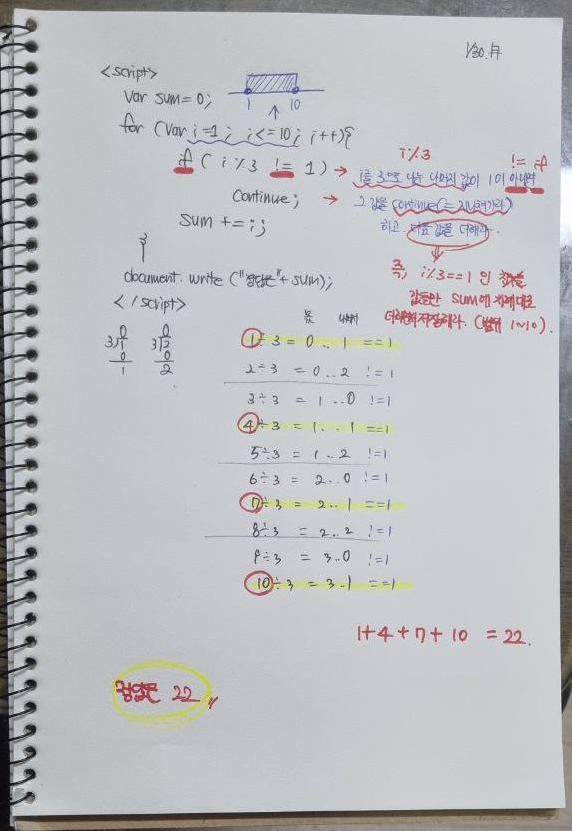 1/30. 月
<script>
var sum=0;
1 10
for (var i=1; i<=10; i++){
i%3
!= if
if ( i %3 != 1) → i를 3으로 나눈 나머지 값이 1이 아니면
continue; → 그 값을 continue(= 지나쳐가라)
sum += i; 하고 다음 값을 더해라.
}
즉, i%3==1 인
document. write ("정답은"+ sum); 값들만 sum에 차례대로
</script> 더해 저장해라. (범위 1~10).
몫 나머지
0 0
3/1 3/2
0 0
1 2
1÷3 = 0..1 ==1
2÷3 = 0..2 !=1
3÷3 = 1..0 !=1
4÷3 = 1..1 ==1
5÷3 = 1..2 !=1
6÷3 = 2..0 !=1
7÷3 = 2..1 ==1
8÷3 = 2..2 !=1
9÷3 = 3..0 !=1
10÷3 = 3..1 ==1
1+4+7+10 = 22.
정답은 22 〃